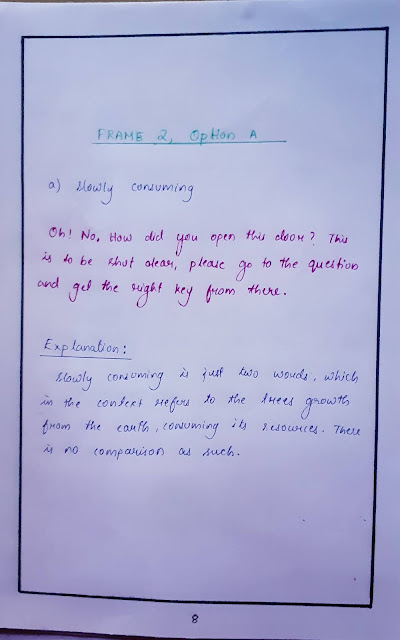 FRAME 2, Option A
a) Slowly consuming
Oh! No, How did you open this door? This
is to be shut dear, please go to the question
and get the right key from there.
Explanation:
Slowly consuming is just two words, which
in the context refers to the trees growth
from the earth, consuming its resources. There
is no comparison as such.
8